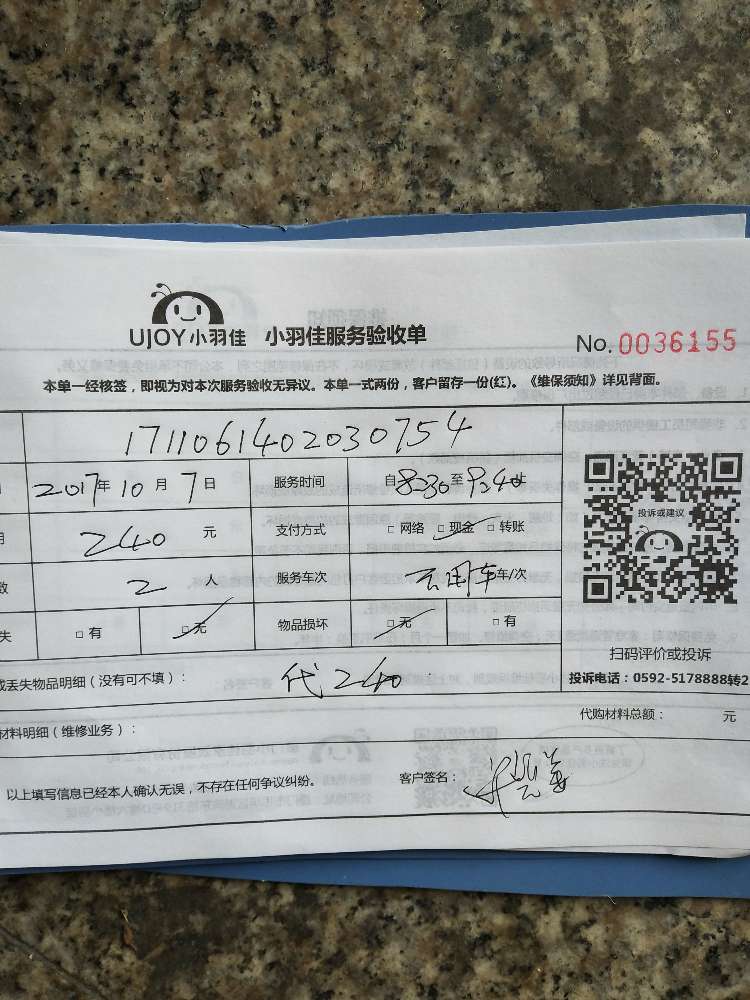 UJOY小羽佳 小羽佳服务验收单
No. 0036155
本单一经核签，即视为对本次服务验收无异议。本单一式两份，客户留存一份(红)。《维保须知》详见背面。
1711061402030754
2017年 10 月 7 日 服务时间 自8:30至9:40止
240 元 支付方式 □ 网络 □ 现金 □ 转账
投诉或建议
数 2 人 服务车次 公用车 车/次
失 □ 有 □ 无 物品损坏 □ 无 □ 有
扫码评价或投诉
或丢失物品明细（没有可不填）： 代240
投诉电话：0592-5178888转2
材料明细（维修业务）：
代购材料总额： 元
以上填写信息已经本人确认无误，不存在任何争议纠纷。 客户签名：